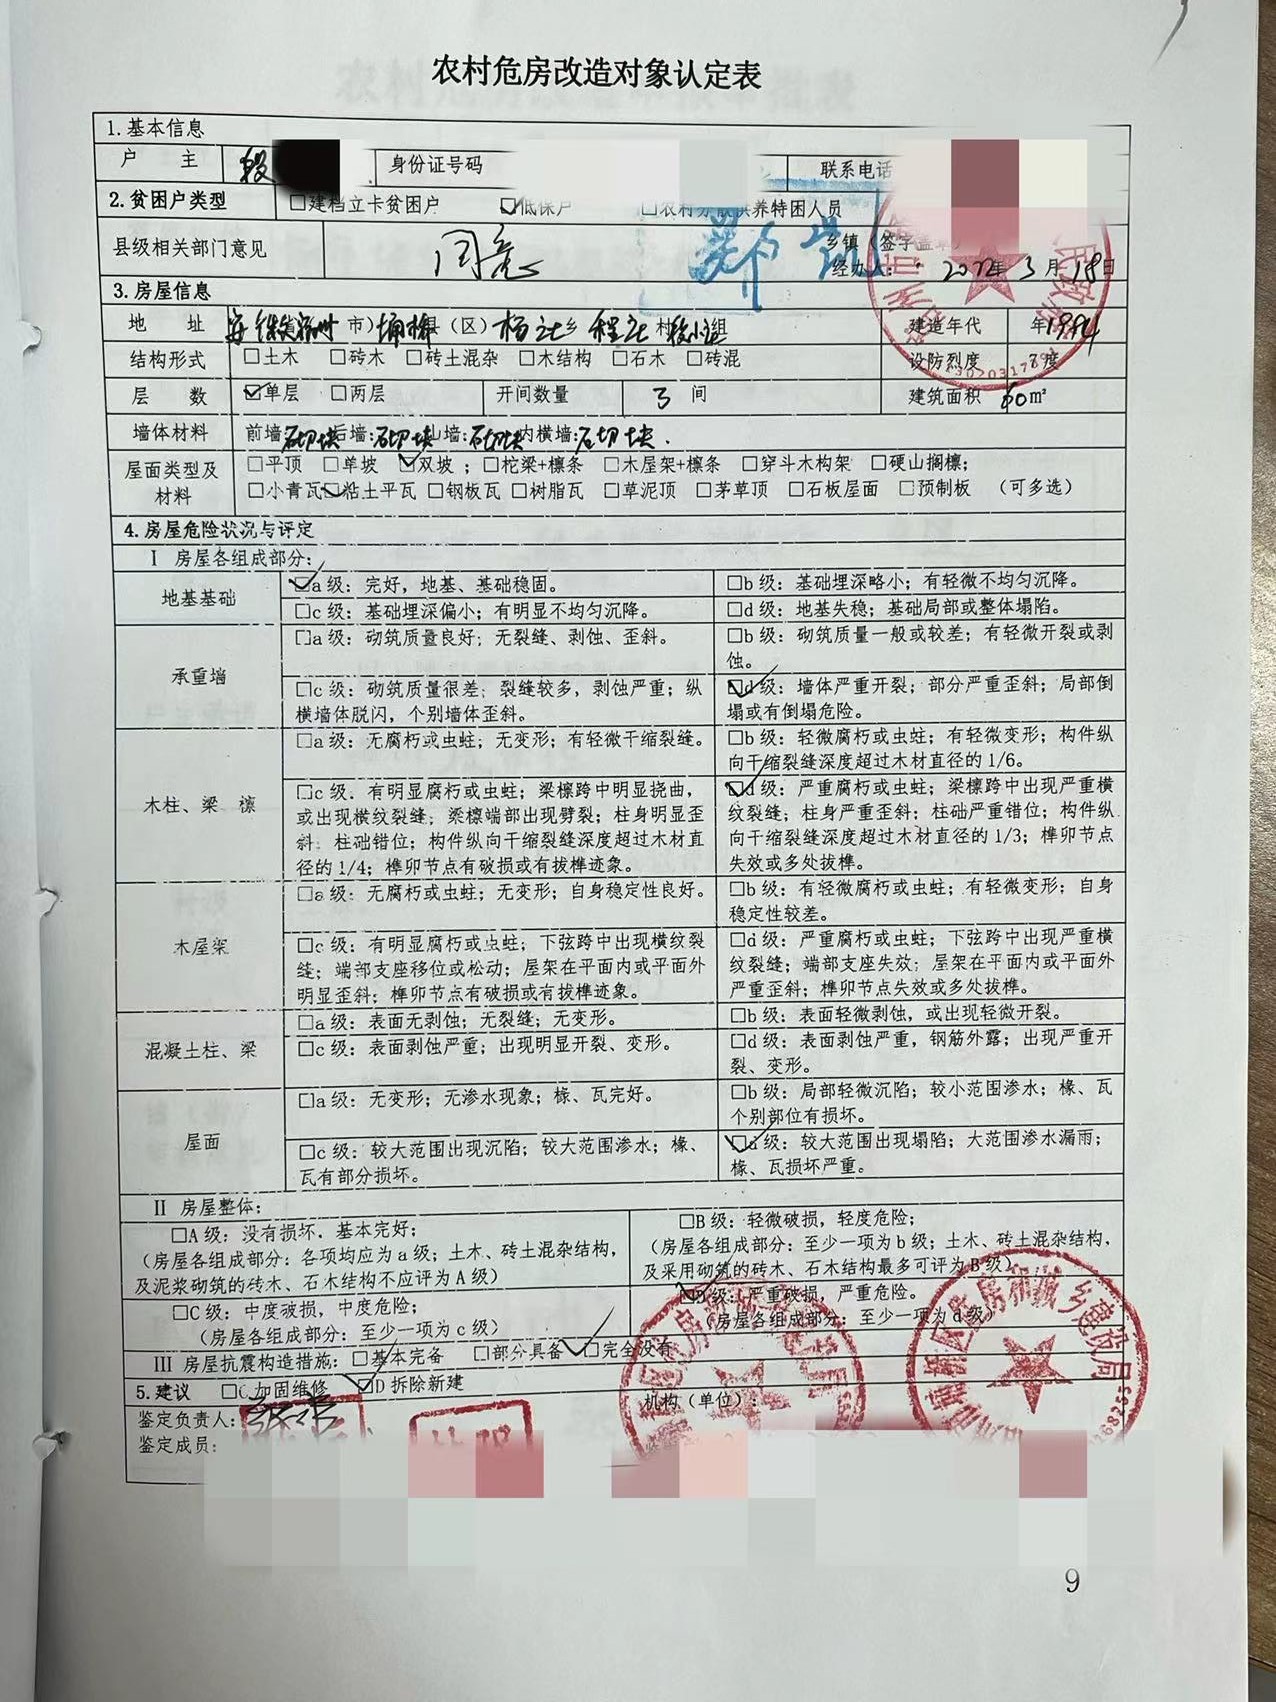 农村危房改造对象认定表
1.基本信息
户 主 段 身份证号码 联系电话
2.贫困户类型 □建档立卡贫困户 ☑低保户 □农村分散供养特困人员
县级相关部门意见 同意 乡镇（签字盖章）
经办人： 2022年3月18日
3.房屋信息
地 址 安徽省宿州市)埇桥县（区）杨庄乡 程庄村 段小组 建造年代 年1994
结构形式 □土木 □砖木 □砖土混杂 □木结构 □石木 □砖混 设防烈度 7度
层 数 ☑单层 □两层 开间数量 3 间 建筑面积 60m²
墙体材料 前墙:石切块 后墙:石切块 山墙:石切块 内横墙:石切块.
屋面类型及材料 □平顶 □单坡 ☑双坡；□柁梁+檩条 □木屋架+檩条 □穿斗木构架 □硬山搁檩；
□小青瓦 ☑粘土平瓦 □钢板瓦 □树脂瓦 □草泥顶 □茅草顶 □石板屋面 □预制板 （可多选）
4.房屋危险状况与评定
Ⅰ 房屋各组成部分：
地基基础
☑a级：完好，地基、基础稳固。
□b级：基础埋深略小；有轻微不均匀沉降。
□c级：基础埋深偏小；有明显不均匀沉降。
□d级：地基失稳；基础局部或整体塌陷。
承重墙
□a级：砌筑质量良好；无裂缝、剥蚀、歪斜。
□b级：砌筑质量一般或较差；有轻微开裂或剥
蚀。
□c级：砌筑质量很差；裂缝较多，剥蚀严重；纵
横墙体脱闪，个别墙体歪斜。
☑d级：墙体严重开裂；部分严重歪斜；局部倒
塌或有倒塌危险。
木柱、梁、檩
□a级：无腐朽或虫蛀；无变形；有轻微干缩裂缝。
□b级：轻微腐朽或虫蛀；有轻微变形；构件纵
向干缩裂缝深度超过木材直径的1/6。
□c级．有明显腐朽或虫蛀；梁檩跨中明显挠曲，
或出现横纹裂缝；梁檩端部出现劈裂；柱身明显歪
斜；柱础错位；构件纵向干缩裂缝深度超过木材直
径的1/4；榫卯节点有破损或有拔榫迹象。
☑d级：严重腐朽或虫蛀；梁檩跨中出现严重横
纹裂缝；柱身严重歪斜；柱础严重错位；构件纵
向干缩裂缝深度超过木材直径的1/3；榫卯节点
失效或多处拔榫。
木屋架
□a级：无腐朽或虫蛀；无变形；自身稳定性良好。
□b级：有轻微腐朽或虫蛀；有轻微变形；自身
稳定性较差。
□c级：有明显腐朽或虫蛀；下弦跨中出现横纹裂
缝；端部支座移位或松动；屋架在平面内或平面外
明显歪斜；榫卯节点有破损或有拔榫迹象。
□d级：严重腐朽或虫蛀；下弦跨中出现严重横
纹裂缝；端部支座失效；屋架在平面内或平面外
严重歪斜；榫卯节点失效或多处拔榫。
混凝土柱、梁
□a级：表面无剥蚀；无裂缝；无变形。
□b级：表面轻微剥蚀，或出现轻微开裂。
□c级：表面剥蚀严重；出现明显开裂、变形。
□d级：表面剥蚀严重，钢筋外露；出现严重开
裂、变形。
屋面
□a级：无变形；无渗水现象；椽、瓦完好。
□b级：局部轻微沉陷；较小范围渗水；椽、瓦
个别部位有损坏。
□c级：较大范围出现沉陷；较大范围渗水；椽、
瓦有部分损坏。
☑d级：较大范围出现塌陷；大范围渗水漏雨；
椽、瓦损坏严重。
Ⅱ 房屋整体：
□A级：没有损坏．基本完好；
（房屋各组成部分：各项均应为a级；土木、砖土混杂结构，
及泥浆砌筑的砖木、石木结构不应评为A级）
□B级：轻微破损，轻度危险；
（房屋各组成部分：至少一项为b级；土木、砖土混杂结构，
及采用砌筑的砖木、石木结构最多可评为B级）
□C级：中度破损，中度危险；
（房屋各组成部分：至少一项为c级）
☑D级：严重破损，严重危险。
（房屋各组成部分：至少一项为d级）
Ⅲ 房屋抗震构造措施：□基本完备 □部分具备 ☑完全没有
5.建议 □C加固维修 ☑D拆除新建
鉴定负责人： 机构（单位）：
鉴定成员：
9